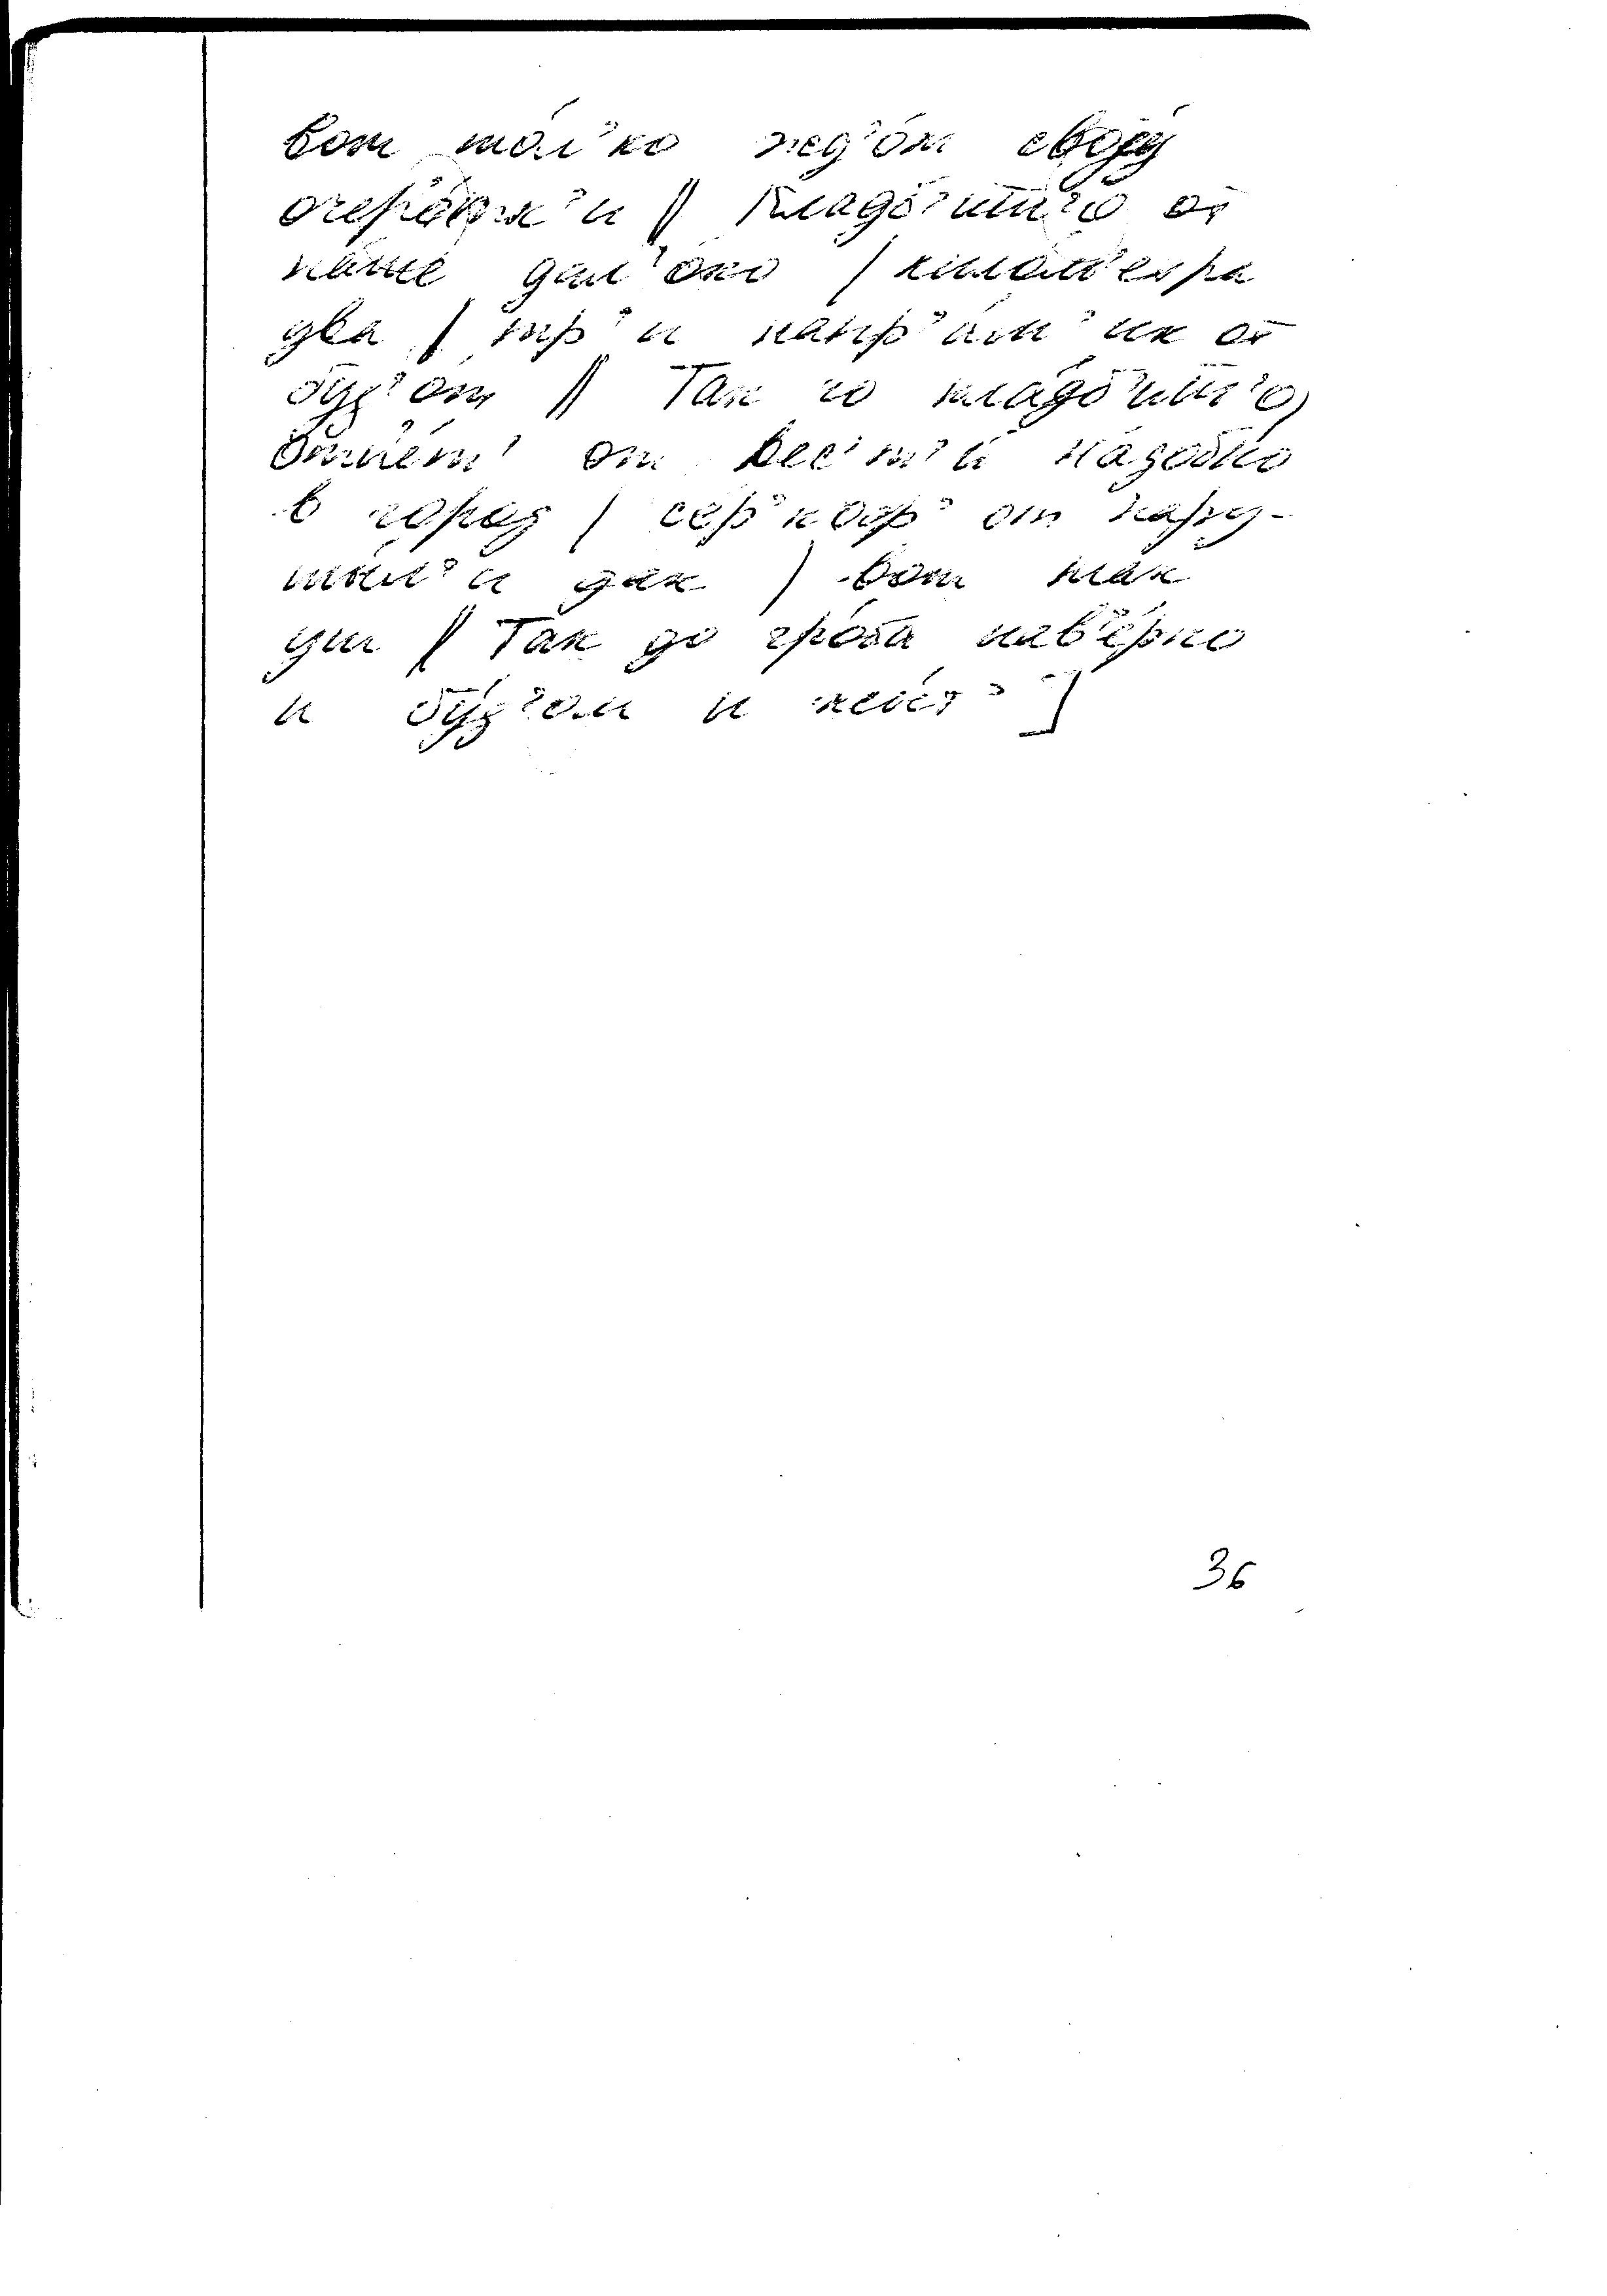 вот тол'ко жед'о́м свою́
очер'о́тк'и // Кла́дб'ишш'о от
на́ше дал'око́ / килом'етра
два / тр'и напр'ам'ик от
буд'от // Так что кла́дб'ишш'о,
от вес'т'и́ на́добно
в город / от нару-
шыл'и дак / вот так
уш // Так до гро́ба нав'е́рно
и бу́д'ом и жыт' ]
36